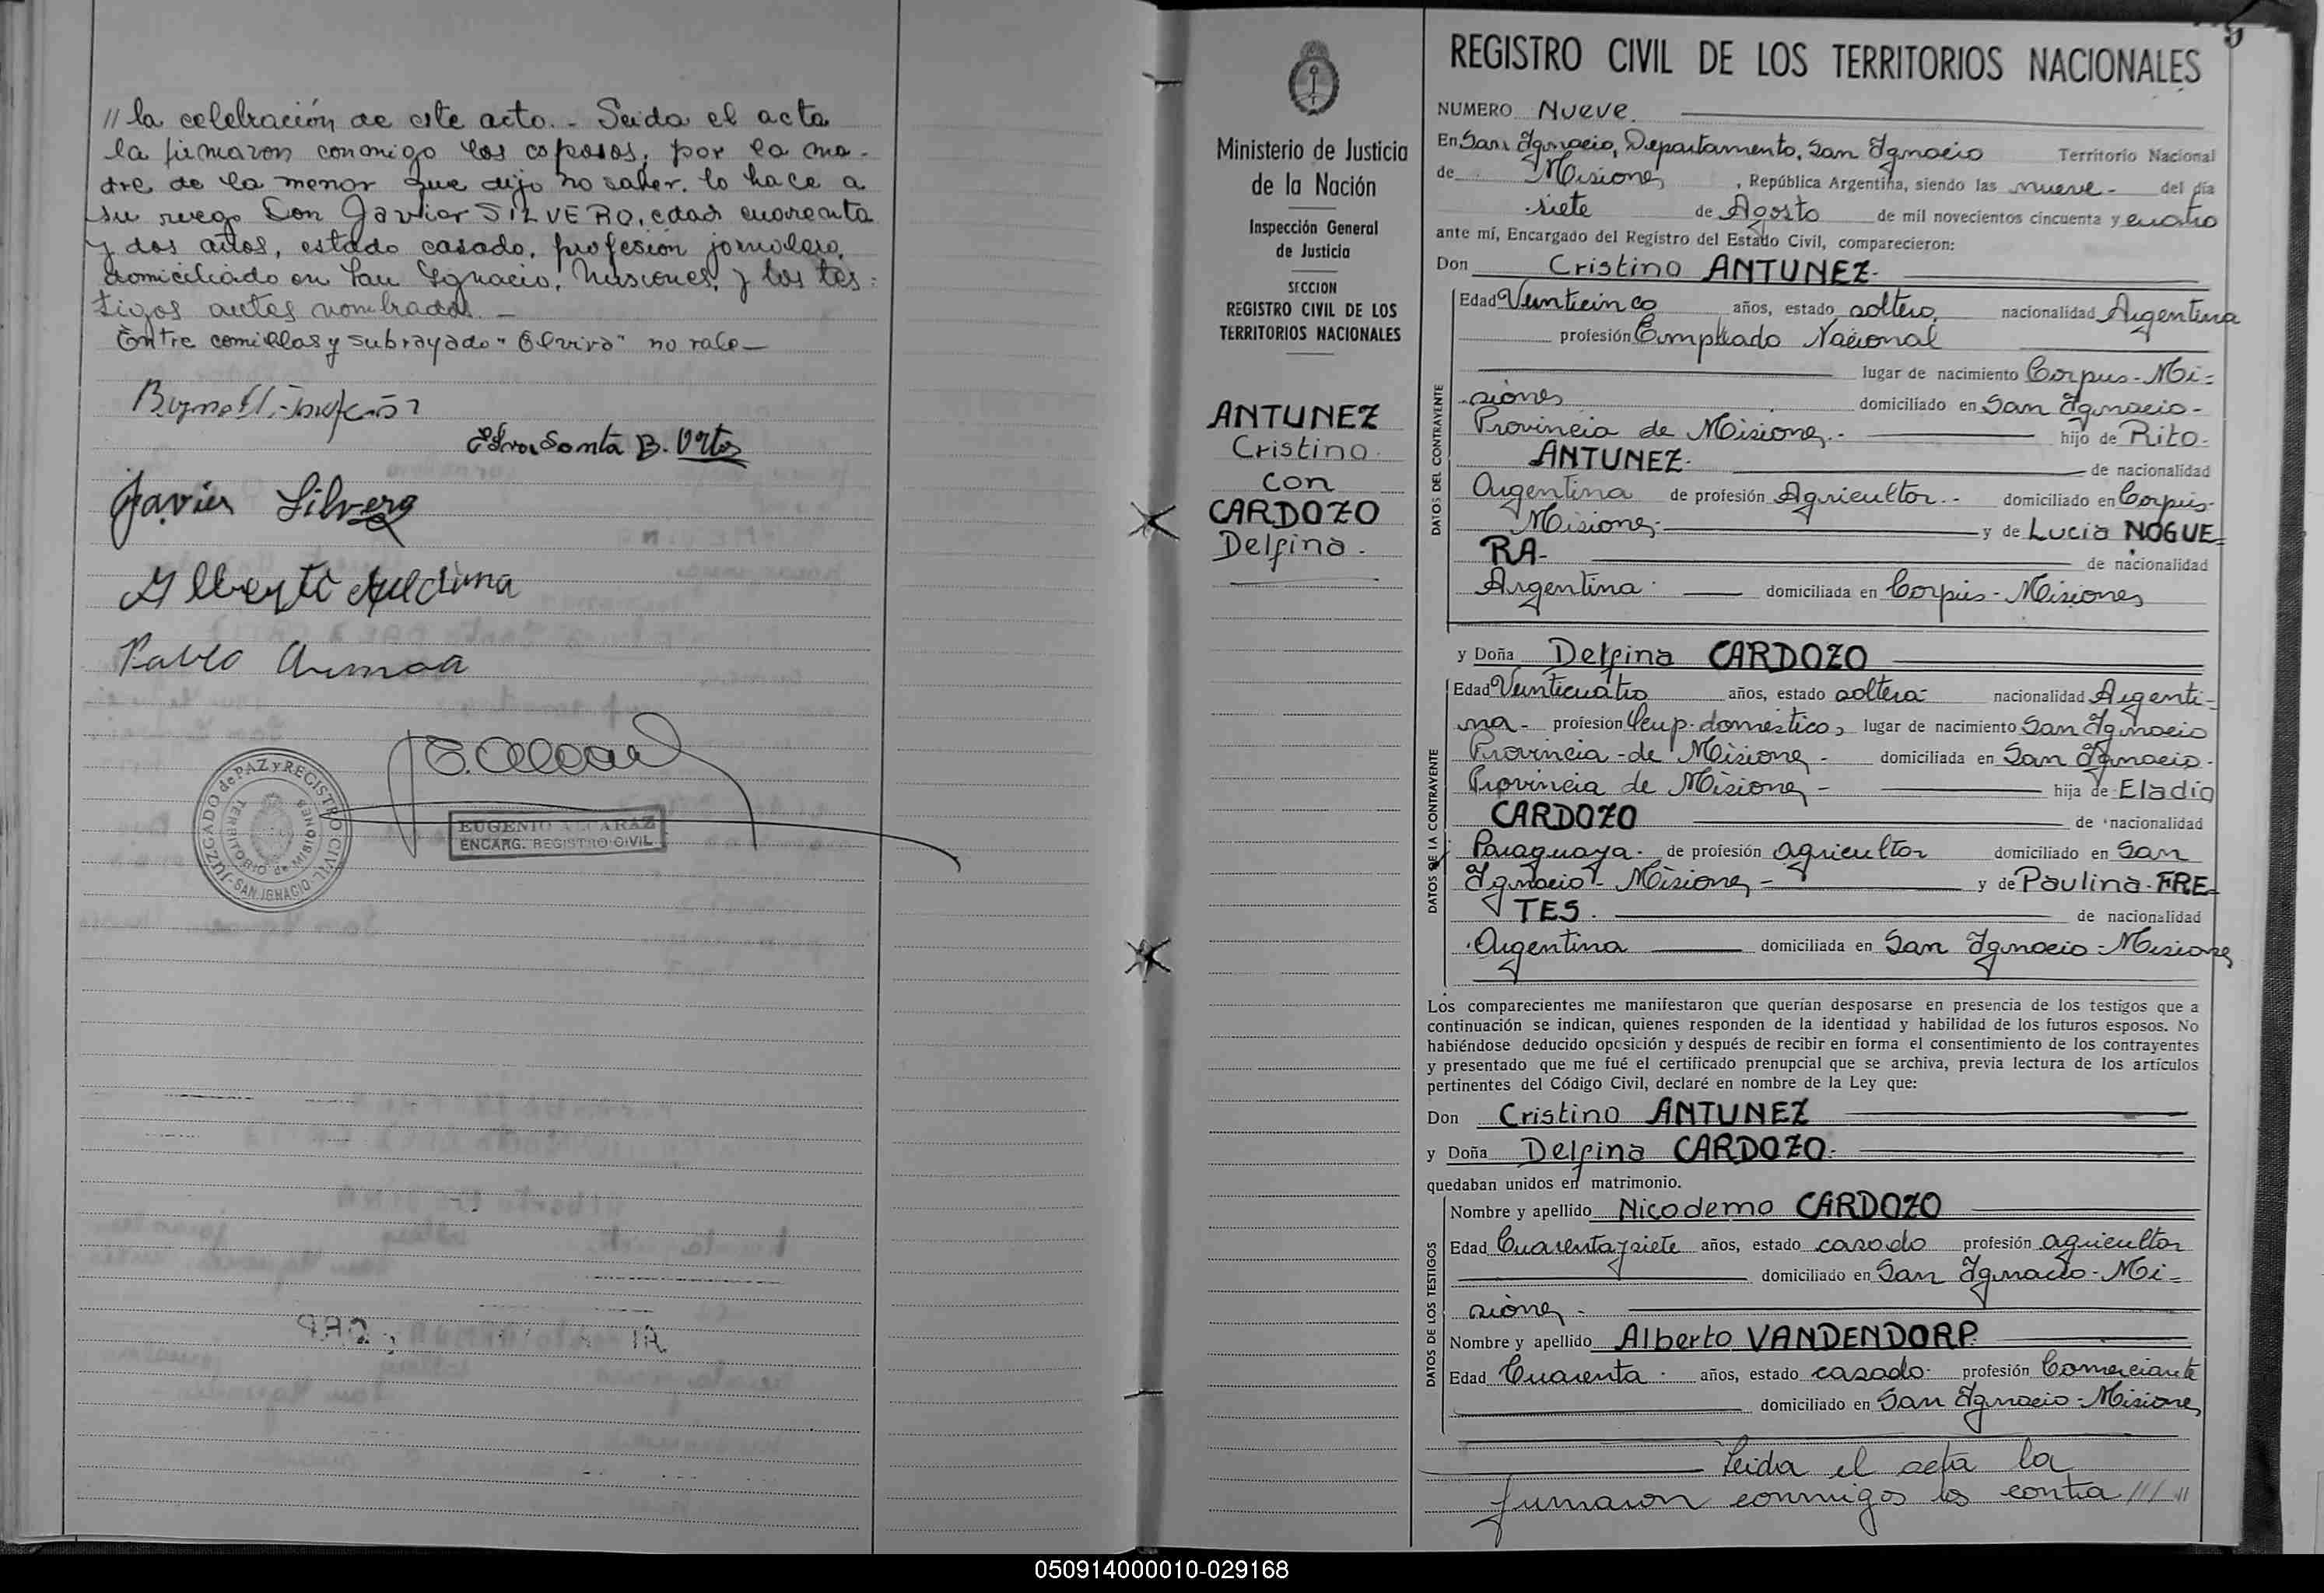 // la celebración de este acto. - Leida el acta
la firmaron conmigo los esposos, por la ma-
dre de la menor que dijo no saber. lo hace a
su ruego Don Javier SILVERO, edad cuarenta
y dos años, estado casado, profesión jornalero,
domiciliado en San Ignacio, Misiones, y los tes-
tigos antes nombrados. -
Entre comillas y subrayado "Elvira" no vale -
Santa B. Ortos
Javier Silvero
Alberto
Pablo Armoa
JUZGADO de PAZ y REGISTRO CIVIL
TERRITORIO de MISIONES
- SAN IGNACIO -
EUGENIO ALCARAZ
ENCARG. REGISTRO CIVIL
Ministerio de Justicia
de la Nación
Inspección General
de Justicia
SECCION
REGISTRO CIVIL DE LOS
TERRITORIOS NACIONALES
ANTUNEZ
Cristino
con
CARDOZO
Delfina.
REGISTRO CIVIL DE LOS TERRITORIOS NACIONALES
NUMERO Nueve.
En San Ignacio, Departamento, San Ignacio Territorio Nacional
de Misiones, República Argentina, siendo las nueve- del día
siete de Agosto de mil novecientos cincuenta y cuatro
ante mí, Encargado del Registro del Estado Civil, comparecieron:
Don Cristino ANTUNEZ-
DATOS DEL CONTRAYENTE
Edad Veinticinco años, estado soltero, nacionalidad Argentina
profesión Empleado Nacional
lugar de nacimiento Corpus-Mi=
siones domiciliado en San Ignacio-
Provincia de Misiones.- hijo de Rito-
ANTUNEZ- de nacionalidad
Argentina de profesión Agricultor.- domiciliado en Corpus-
Misiones- y de Lucia NOGUE=
RA- de nacionalidad
Argentina domiciliada en Corpus-Misiones
y Doña Delfina CARDOZO
DATOS DE LA CONTRAYENTE
Edad Veinticuatro años, estado soltera- nacionalidad Argenti-
na- profesion Ocup. domestico, lugar de nacimiento San Ignacio
Provincia-de Misiones- domiciliada en San Ignacio-
Provincia de Misiones- hija de Eladio
CARDOZO de nacionalidad
Paraguaya- de profesión agricultor domiciliado en San
Ignacio- Misiones- y de Paulina-FRE=
TES. de nacionalidad
Argentina domiciliada en San Ignacio-Misiones
Los comparecientes me manifestaron que querían desposarse en presencia de los testigos que a
continuación se indican, quienes responden de la identidad y habilidad de los futuros esposos. No
habiéndose deducido oposición y después de recibir en forma el consentimiento de los contrayentes
y presentado que me fué el certificado prenupcial que se archiva, previa lectura de los artículos
pertinentes del Código Civil, declaré en nombre de la Ley que:
Don Cristino ANTUNEZ
y Doña Delfina CARDOZO-
quedaban unidos en matrimonio.
DATOS DE LOS TESTIGOS
Nombre y apellido Nicodemo CARDOZO
Edad Cuarenta y siete años, estado casado profesión agricultor
domiciliado en San Ignacio-Mi=
siones-
Nombre y apellido Alberto VANDENDORP.
Edad Cuarenta- años, estado casado- profesión Comerciante
domiciliado en San Ignacio-Misiones
Leida el acta la
firmaron conmigo los contra ////
050914000010-029168